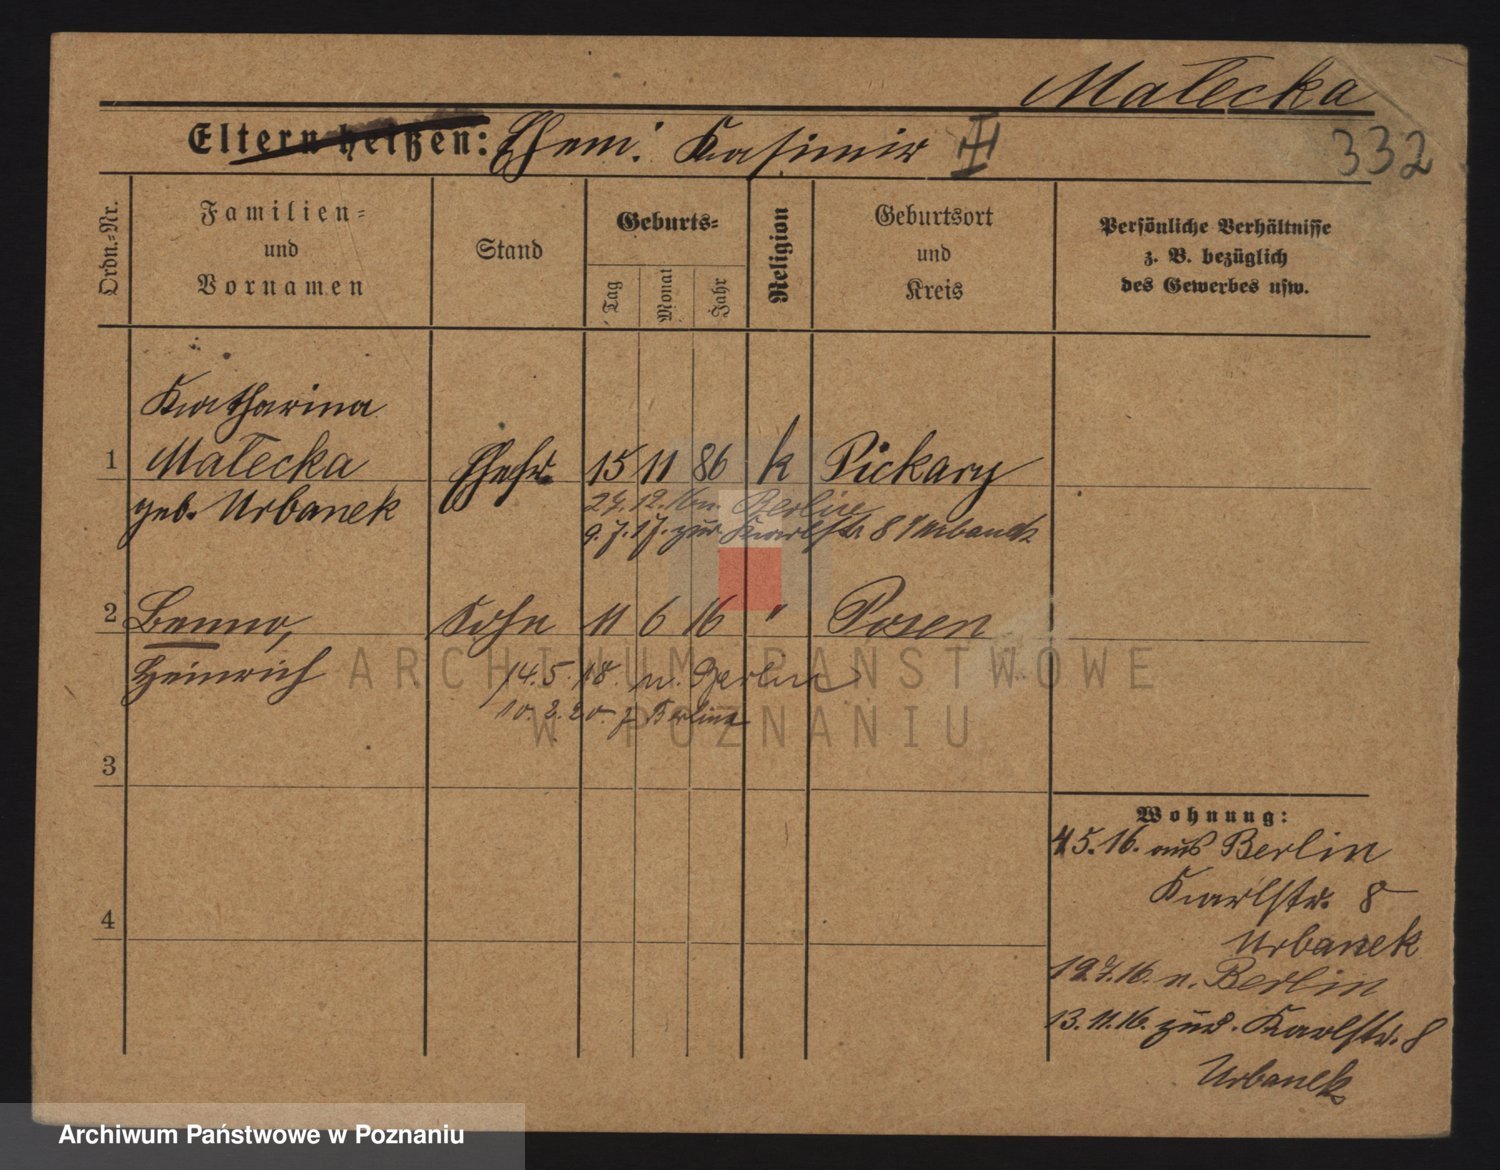 Małecka
Eltern heißen: Ehem. Kasimir III
332
Ordn.=Nr.
Familien=
und
Vornamen
Stand
Geburts=
Tag
Monat
Jahr
Religion
Geburtsort
und
Kreis
Persönliche Verhältnisse
z. B. bezüglich
des Gewerbes usw.
Katharina
1 Małecka Ehefr. 15 11 86 k Pickary
geb. Urbanek
27.12.16 n. Berlin
9.7.17. zur. Karlstr 8 Urbanek
2 Benno, Sohn 11 6 16 " Posen
Heinrich
14.5.18. n. Berlin
10.2.20. z Berlin
3
4
Wohnung:
45.16. aus Berlin
Karlstr. 8
Urbanek
19.7.16. n. Berlin
13.11.16. zur. Karlstr. 8
Urbanek
ARCHIWUM PAŃSTWOWE
W POZNANIU
Archiwum Państwowe w Poznaniu